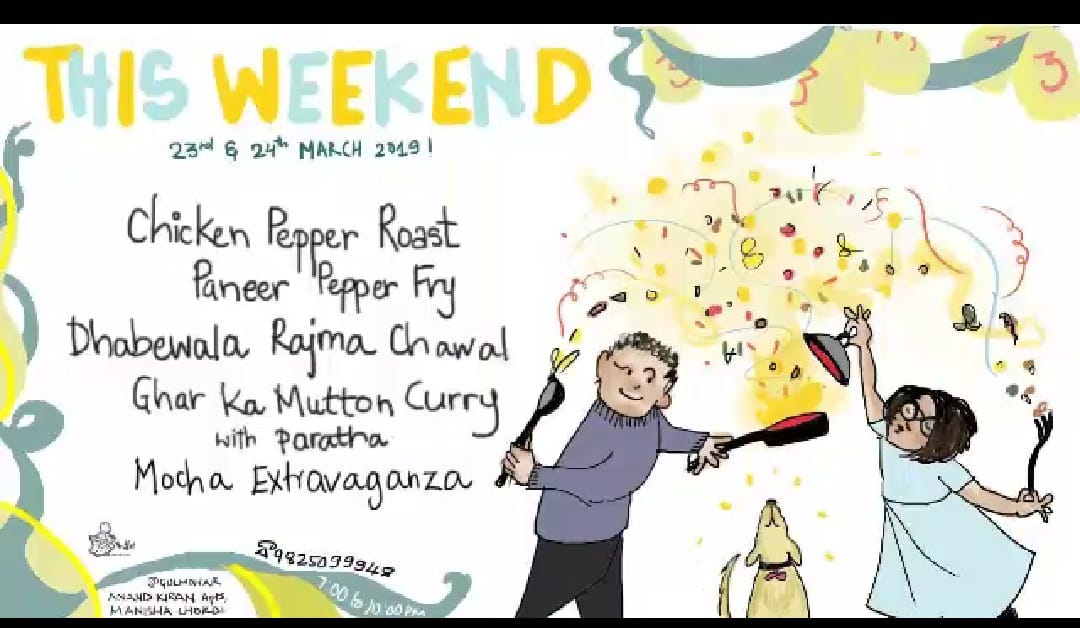 THIS WEEKEND
23rd & 24th MARCH 2019!
Chicken Pepper Roast
Paneer Pepper Fry
Dhabewala Rajma Chawal
Ghar Ka Mutton Curry
with Paratha
Mocha Extravaganza
9825099948
7:00 to 10:00 PM
@GULMOHAR
ANAND KIRAN APTS,
MANISHA
3
3
3
3
3